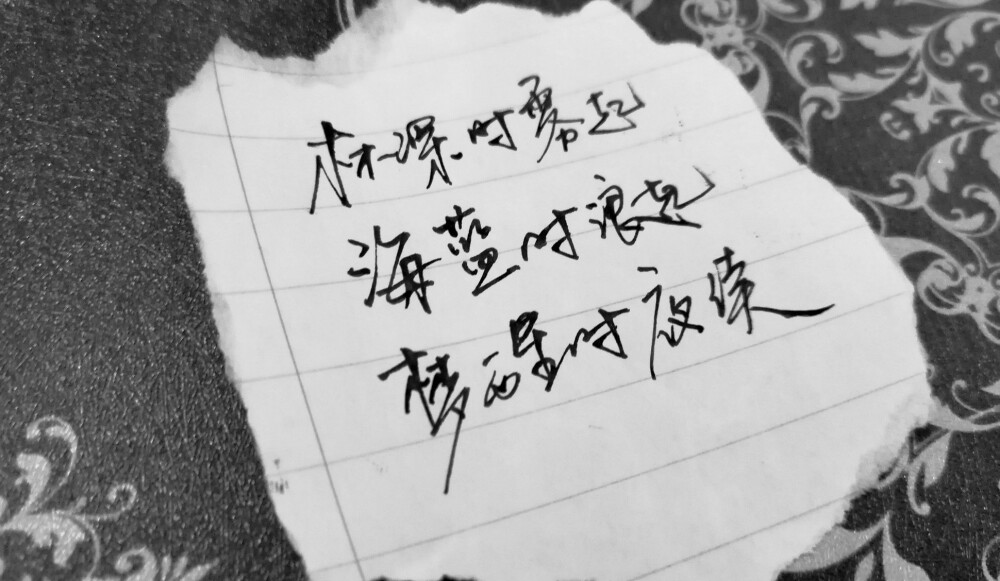 林深时雾起
海蓝时浪起
梦醒时夜续